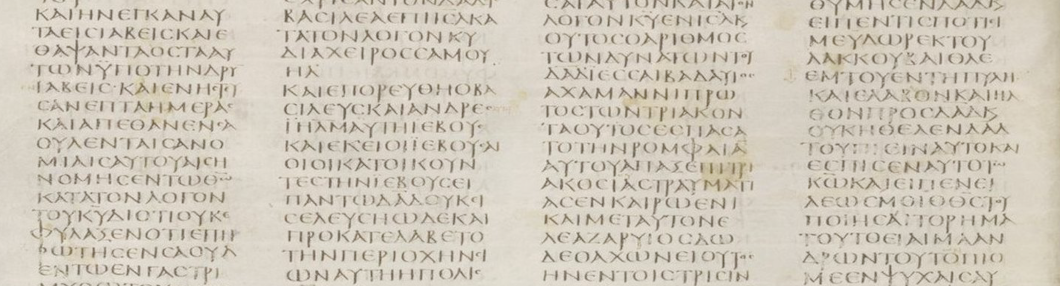 ΚΑΙΗΝΕΓΚΑΝΑΥ
ΤΑΕΙϹΙΑΒΕΙϹΚΑΙΕ
ΘΑΨΑΝΤΑΟϹΤΑΑΥ
ΤΩΝΫΠΟΤΗΝΔΡΥ
ΪΑΒΕΙϹΚΑΙΕΝΗϹΤΙ
ϹΑΝΕΠΤΑΗΜΕΡΑϹ
ΚΑΙΑΠΕΘΑΝΕΝϹΑ
ΟΥΛΕΝΤΑΙϹΑΝΟ
ΜΙΑΙϹΑΥΤΟΥ
ΝΟΜΗϹΕΝΤΩΘΩ
ΚΑΤΑΤΟΝΛΟΓΟΝ
ΤΟΥΚΥΔΙΟΤΙΟΥΚΕ
ΦΥΛΑΞΕΝΟΤΙΕΠΗ
ΡΩΤΗϹΕΝϹΑΟΥΛ
ΕΝΤΩΕΝΓΑϹΤΡΙ
ΒΑϹΙΛΕΑΕΠΙΙϹΛΚΑ
ΤΑΤΟΝΛΟΓΟΝΚΥ
ΔΙΑΧΕΙΡΟϹϹΑΜΟΥ
ΗΛ
ΚΑΙΕΠΟΡΕΥΘΗΟΒΑ
ϹΙΛΕΥϹΚΑΙΑΝΔΡΕϹ
ΪΗΛΜΑΥΤΗΙΕΒΟΥϹ
ΚΑΙΕΚΕΙΟΙΪΕΒΟΥϹΑΙ
ΟΙΟΙΚΑΤΟΙΚΟΥΝ
ΤΕϹΤΗΝΪΕΒΟΥϹΕΙ
ΠΑΝΤΩΔΑΔΟΥΚΙ
ϹΕΛΕΥϹΗΩΔΕΚΑΙ
ΠΡΟΚΑΤΕΛΑΒΕΤΟ
ΤΗΝΠΕΡΙΟΧΗΝϹΙ
ΩΝΑΥΤΗΗΠΟΛΙϹ
ΛΟΓΟΝΚΥΕΝΙϹΛΚ
ΟΥΤΟϹΟΑΡΙΘΜΟϹ
ΤΩΝΔΥΝΑΤΩΝΤΟΥ
ΔΑΔΪΕϹϹΑΙΒΑΔΑΥΙΟϹ
ΑΧΑΜΑΝΝΙΠΡΩ
ΤΟϹΤΩΝΤΡΙΑΚΟΝ
ΤΑΟΥΤΟϹΕϹΠΑϹΑ
ΤΟΤΗΝΡΟΜΦΑΙΑ
ΑΥΤΟΥΑΠΑΞΕΠΙΤΡΙ
ΑΚΟϹΙΑϹΤΡΑΥΜΑΤΙ
ΑϹΕΝΚΑΙΡΩΕΝΙ
ΚΑΙΜΕΤΑΥΤΟΝΕ
ΛΕΑΖΑΡΥΙΟϹΔΩ
ΔΕΟΑΧΩΝΕΙΟΥΤΟϹ
ΗΝΕΝΤΟΙϹΤΡΙϹΙΝ
ΕΙΠΕΝΤΙϹΠΟΤΙ
ΜΕΥΔΩΡΕΚΤΟΥ
ΛΑΚΚΟΥΒΑΙΘΛΕ
ΕΜΤΟΥΕΝΤΗΠΥΛΗ
ΚΑΙΕΛΑΒΟΝΚΑΙΗΛ
ΘΟΝΠΡΟϹΔΑΔΚ
ΟΥΚΗΘΕΛΕΝΔΑΔ
ΤΟΥΠΙΕΙΝΑΥΤΟΚΑΙ
ΕϹΠΙϹΕΝΑΥΤΟΤΩ
ΚΩΚΑΙΕΙΠΕΝΕΙ
ΛΕΩϹΜΟΙΟΘϹΤΟΥ
ΠΟΙΗϹΑΙΤΟΡΗΜΑ
ΤΟΥΤΟΕΙΑΙΜΑΑΝ
ΔΡΩΝΤΟΥΤΩΠΙΟ
ΜΕΕΝΨΥΧΑΙϹΑΥ